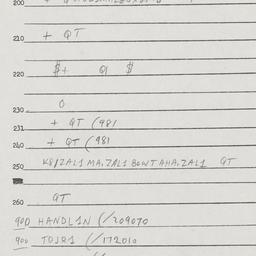 200
210 + QT
220 $+ Q1 $
230 0
231 + QT (981
240 + QT (981
250 K8/ZAL1 MA.ZAL1 BOWTAHA.ZAL1 QT
260 QT
900 HANDL1N (/209070
900 TOJR1 (/172010